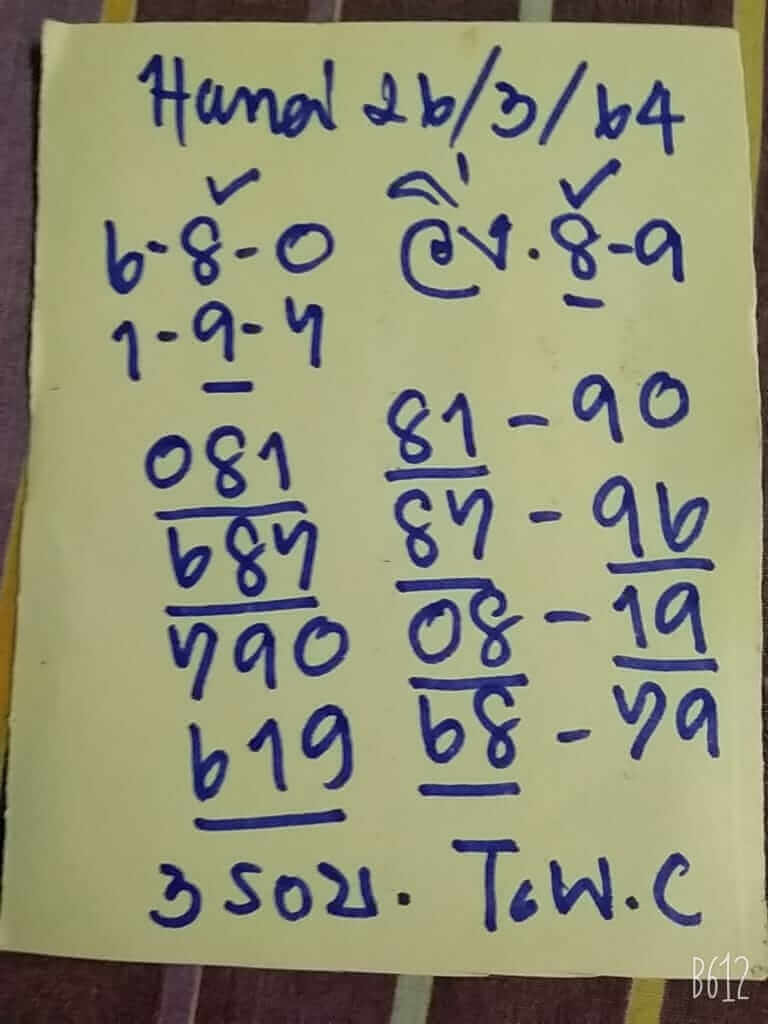 Hanoi 26/3/64
6-8-0 วิ่ง. 8-9
1-9-7
081 81-90
687 87-96
790 08-19
619 68-79
3 รอบ.
B612